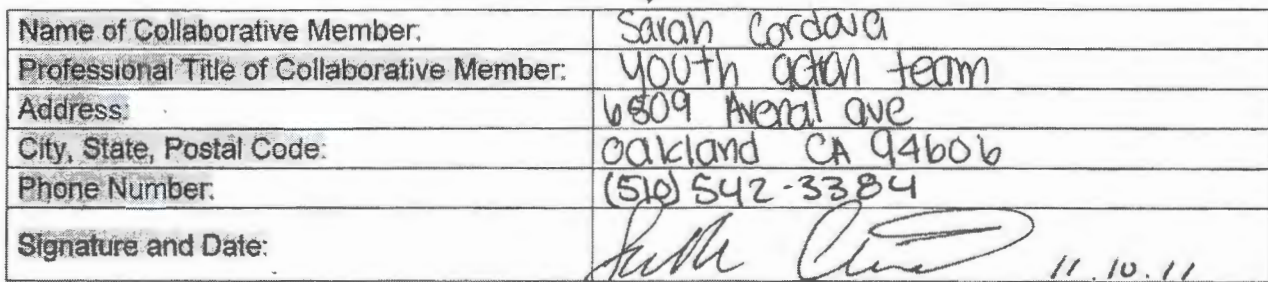 Name of Collaborative Member: Sarah Cordova
Professional Title of Collaborative Member: Youth action team
Address: 6809 Avenal ave
City, State, Postal Code: oakland CA 94606
Phone Number: (510) 542-3384
Signature and Date: 11.10.11